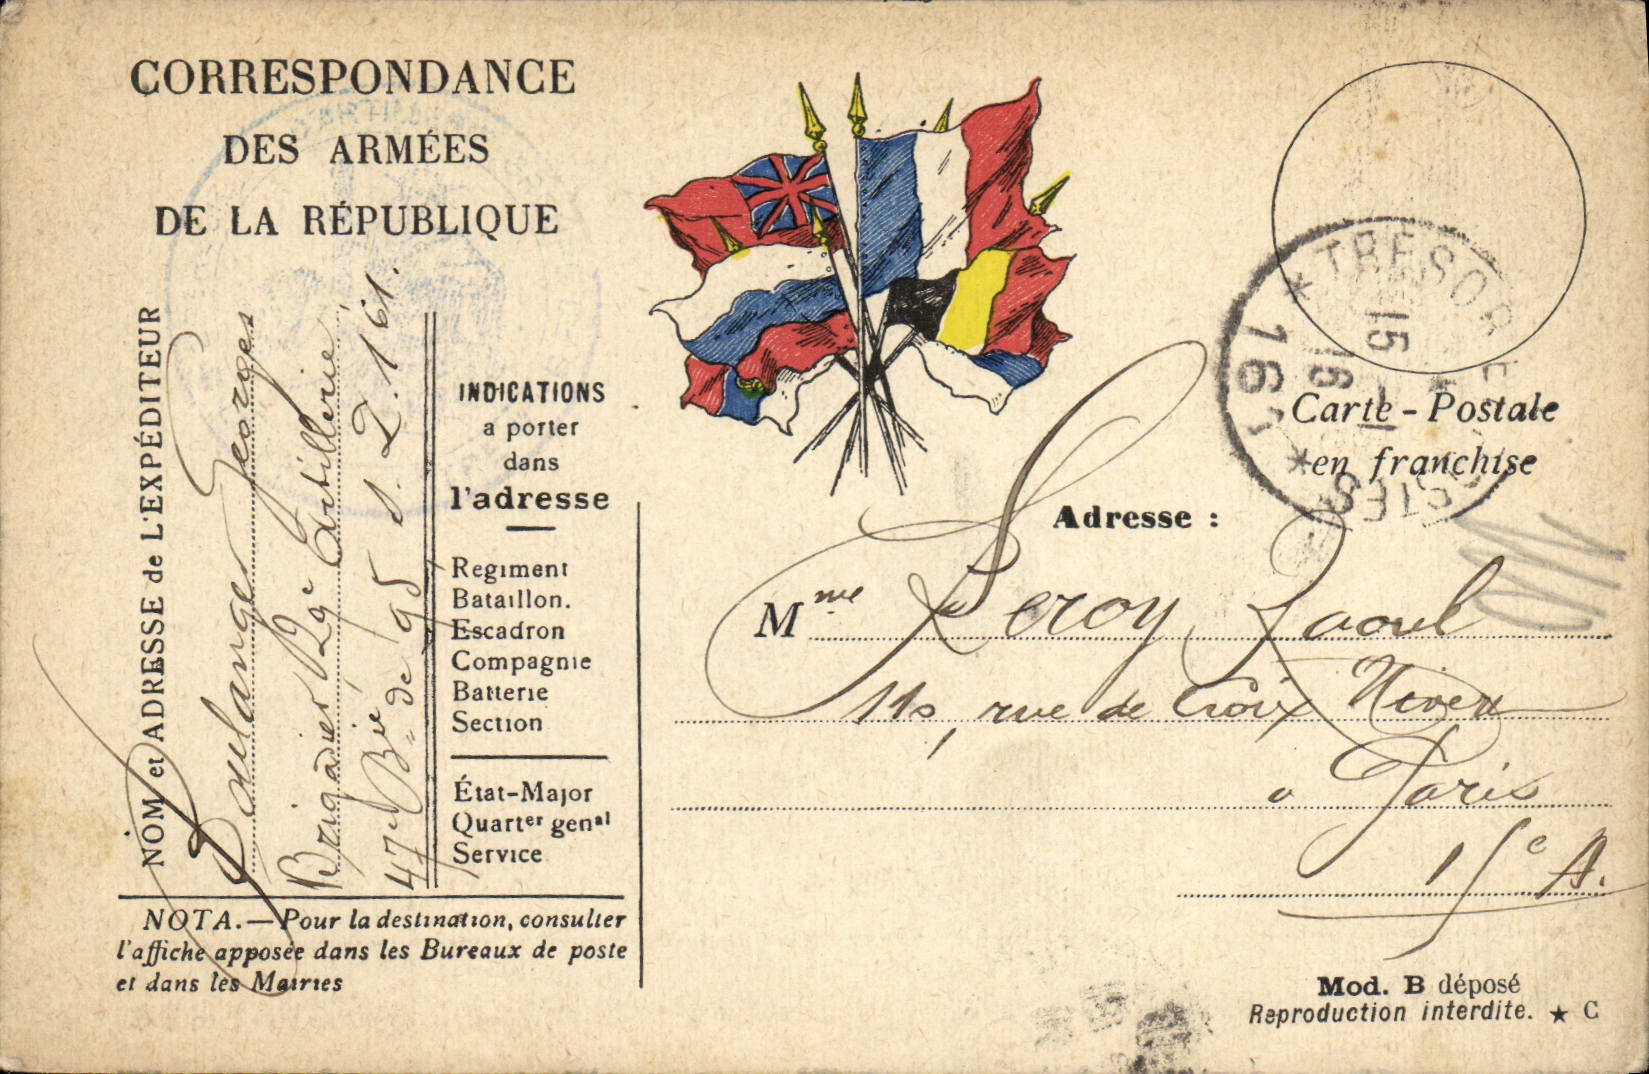 CORRESPONDANCE
DES ARMÉES
DE LA RÉPUBLIQUE
NOM et ADRESSE de L'EXPÉDITEUR
Boulanger Georges
Brigadier 29e Artillerie
47e Bie de 95 s. P. 161.
INDICATIONS
a porter
dans
l'adresse
Regiment
Bataillon.
Escadron
Compagnie
Batterie
Section
État-Major
Quarter genal
Service
NOTA.—Pour la destination, consulter
l'affiche apposée dans les Bureaux de poste
et dans les Mairies
TRESOR ET POSTES
15
16
161
Carte-Postale
en franchise
Adresse :
Mme Leroy Raoul
110, rue de Croix Nivert
a Paris
15e A.
Mod. B déposé
Reproduction interdite. ★ C